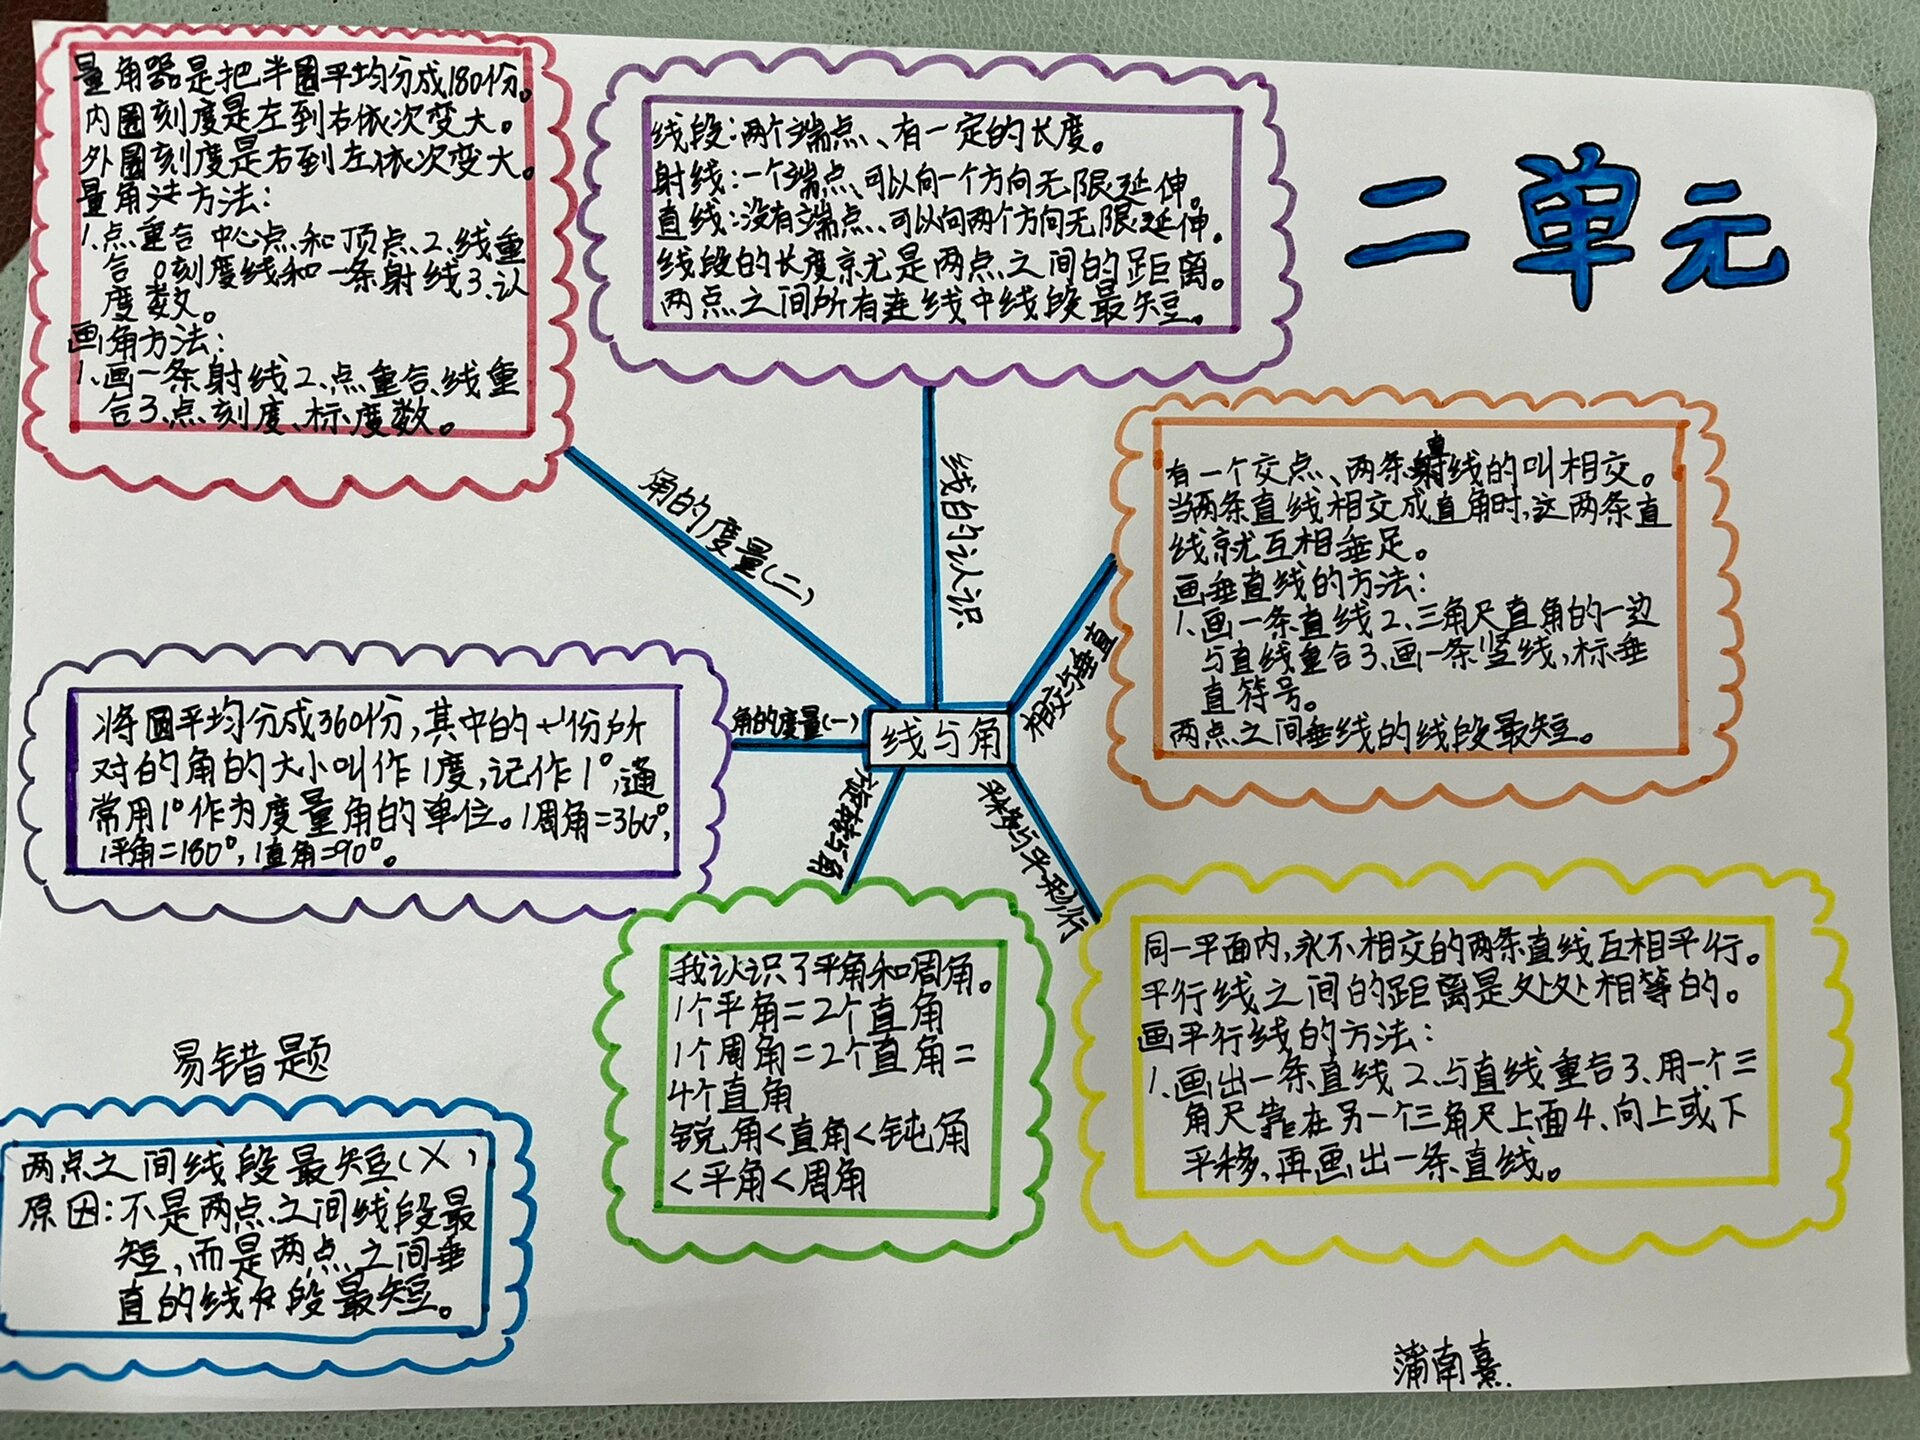 量角器是把半圆平均分成180份。
内圈刻度是左到右依次变大。
外圈刻度是右到左依次变大。
量角法方法：
1.点重合 中心点和顶点、2.线重
合 0刻度线和一条射线3.认
度数。
画角方法：
1.画一条射线2.点重合、线重
合3.点刻度、标度数。
线段：两个端点、有一定的长度。
射线：一个端点、可以向一个方向无限延伸。
直线：没有端点、可以向两个方向无限延伸。
线段的长度就是两点之间的距离。
两点之间所有连线中线段最短。
二单元
有一个交点、两条直线的叫相交。
当两条直线相交成直角时，这两条直
线就互相垂足。
画垂直线的方法：
1.画一条直线2.三角尺直角的一边
与直线重合3.画一条竖线，标垂
直符号。
两点之间垂线的线段最短。
角的度量（二）
线的认识
相交与垂直
角的度量（一）
线与角
旋转与角
平移与平行
将圆平均分成360份，其中的一份所
对的角的大小叫作1度，记作1°，通
常用1°作为度量角的单位。1周角=360°，
1平角=180°，1直角=90°。
我认识了平角和周角。
1个平角=2个直角
1个周角=2个直角=
4个直角
锐角<直角<钝角
<平角<周角
同一平面内，永不相交的两条直线互相平行。
平行线之间的距离是处处相等的。
画平行线的方法：
1.画出一条直线2.与直线重合3.用一个三
角尺靠在另一个三角尺上面4.向上或下
平移，再画出一条直线。
易错题
两点之间线段最短（×）
原因：不是两点之间线段最
短，而是两点之间垂
直的线段最短。
蒲南熹